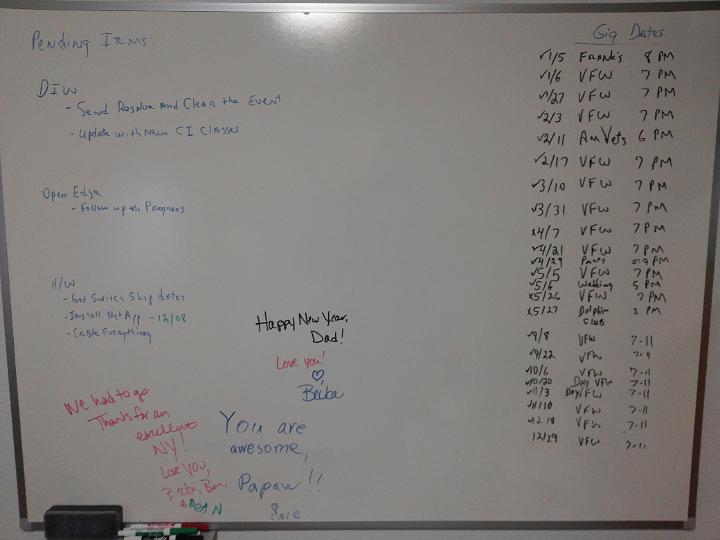 Pending Items:
DIW
- Send Resolve and Clear the Event
- Update with New CI Classes
Open Edge
- Follow up on Progress
H/W
- Get Switch Ship dates
- Install NetApp - 12/08
- Cable Everything
Happy New Year,
Dad!
Love you!
♡
We had to go
Thanks for an
excellent
NY!
Love you,
You are
awesome,
Papaw!!
Gig Dates
✓1/5 Frank's 8 PM
✓1/6 VFW 7 PM
✓1/27 VFW 7 PM
✓2/3 VFW 7 PM
✓2/11 AmVets 6 PM
✓2/17 VFW 7 PM
✓3/10 VFW 7 PM
✓3/31 VFW 7 PM
x4/7 VFW 7 PM
✓4/21 VFW 7 PM
✓4/29 Party 5-9 PM
✓5/5 VFW 7 PM
✓5/6 Wedding 5 PM
x5/26 VFW 7 PM
x5/27 Dolphin 2 PM
Club
✓9/8 VFW 7-11
✓9/22 VFW 7-11
✓10/6 VFW 7-11
✓10/20 Day VFW 7-11
✓11/3 Day VFW 7-11
✓11/10 VFW 7-11
✓12/8 VFW 7-11
12/29 VFW 7-11